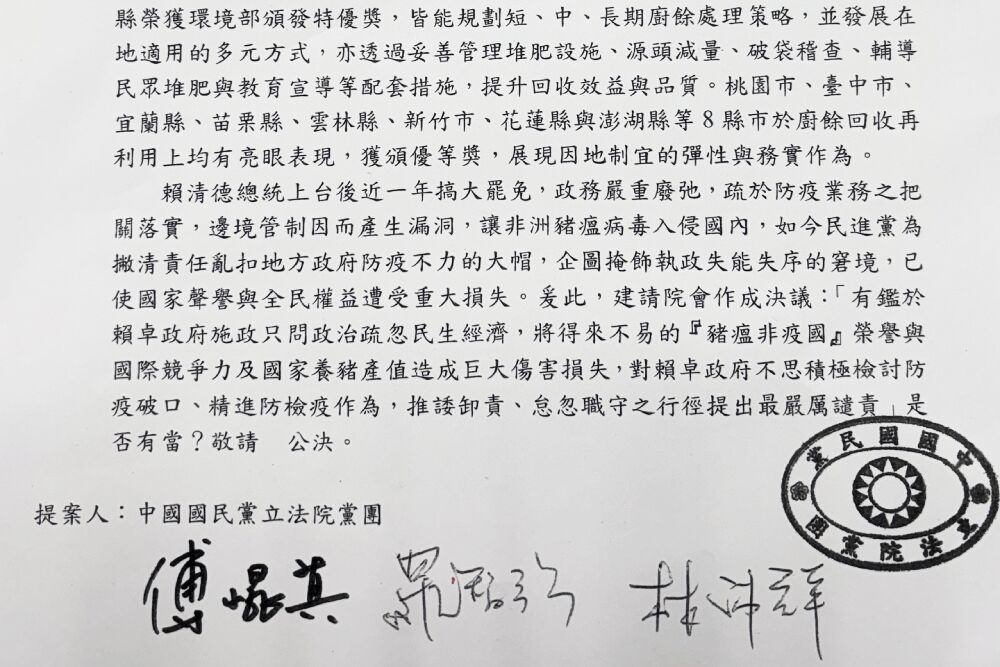 縣榮獲環境部頒發特優獎，皆能規劃短、中、長期廚餘處理策略，並發展在
地適用的多元方式，亦透過妥善管理堆肥設施、源頭減量、破袋稽查、輔導
民眾堆肥與教育宣導等配套措施，提升回收效益與品質。桃園市、臺中市、
宜蘭縣、苗栗縣、雲林縣、新竹市、花蓮縣與澎湖縣等8縣市於廚餘回收再
利用上均有亮眼表現，獲頒優等獎，展現因地制宜的彈性與務實作為。
賴清德總統上台後近一年搞大罷免，政務嚴重廢弛，疏於防疫業務之把
關落實，邊境管制因而產生漏洞，讓非洲豬瘟病毒入侵國內，如今民進黨為
撇清責任亂扣地方政府防疫不力的大帽，企圖掩飾執政失能失序的窘境，已
使國家聲譽與全民權益遭受重大損失。爰此，建請院會作成決議：「有鑑於
賴卓政府施政只問政治疏忽民生經濟，將得來不易的『豬瘟非疫國』榮譽與
國際競爭力及國家養豬產值造成巨大傷害損失，對賴卓政府不思積極檢討防
疫破口、精進防檢疫作為，推諉卸責、怠忽職守之行徑提出最嚴厲譴責」是
否有當？敬請　公決。
提案人：中國國民黨立法院黨團
中國國民黨
立法院黨團
傅崐萁 羅智強 林沛祥